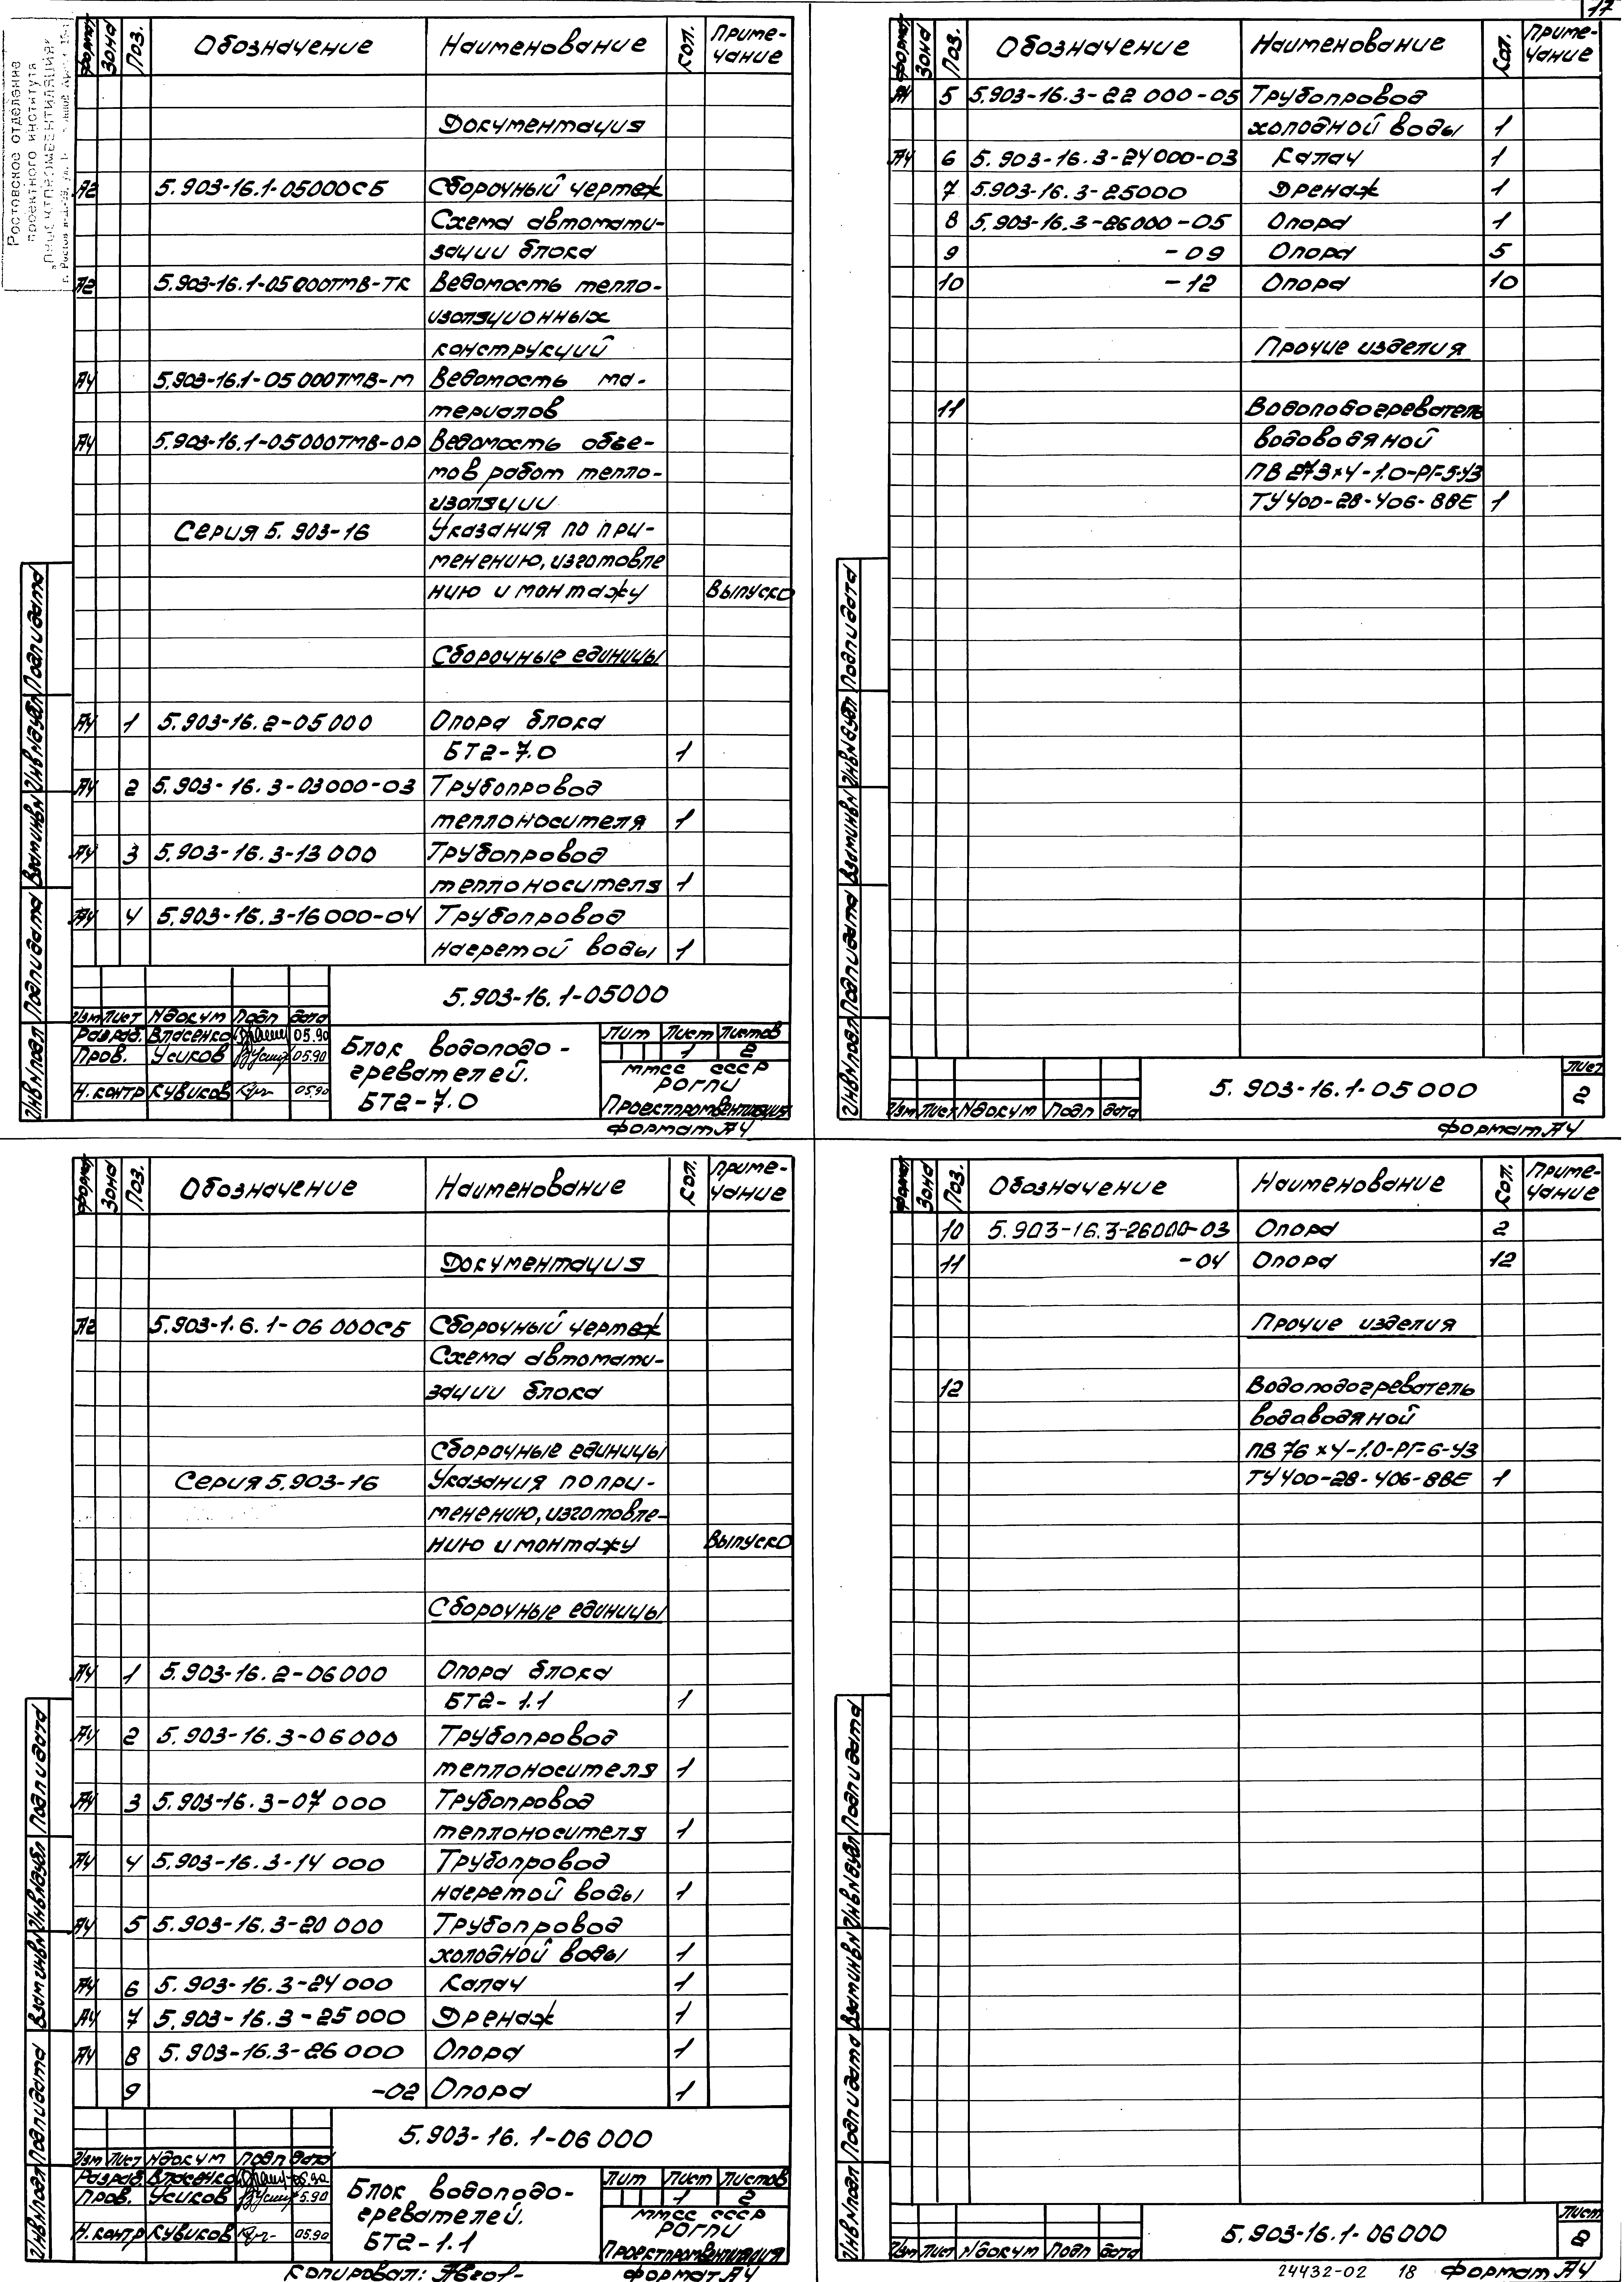 17
Ростовское отделение
проектного института
Формат Зона Поз. Обозначение Наименование Кол. Приме-
чание
Документация
А2 5.903-16.1-05000СБ Сборочный чертеж
Схема автомати-
зации блока
А2 5.903-16.1-05000ТМВ-ТК Ведомость тепло-
изоляционных
конструкций
А4 5.903-16.1-05000ТМВ-М Ведомость ма-
териалов
А4 5.903-16.1-05000ТМВ-ОР Ведомость объе-
мов работ тепло-
изоляции
Серия 5.903-16 Указания по при-
менению, изготовле
нию и монтажу Выпуск0
Сборочные единицы
А4 1 5.903-16.2-05000 Опора блока
БТ2-7.0 1
А4 2 5.903-16.3-03000-03 Трубопровод
теплоносителя 1
А4 3 5.903-16.3-13000 Трубопровод
теплоносителя 1
А4 4 5.903-16.3-16000-04 Трубопровод
нагретой воды 1
5.903-16.1-05000
Изм Лист Nдокум Подп Дата
Разраб. Власенко 05.90
Пров. Усиков 05.90
Н.контр Кувиков 05.90
Блок водоподо-
гревателей.
БТ2-7.0
Лит Лист Листов
1 2
ММСС СССР
РОГПИ
Проектпромвентиляция
Формат А4
Инв.Nподл Подп и дата Взам инв N Инв N дубл Подп и дата
Формат Зона Поз. Обозначение Наименование Кол. Приме-
чание
А4 5 5.903-16.3-22000-05 Трубопровод
холодной воды 1
А4 6 5.903-16.3-24000-03 Калач 1
7 5.903-16.3-25000 Дренаж 1
8 5.903-16.3-26000-05 Опора 1
9 -09 Опора 5
10 -12 Опора 10
Прочие изделия
11 Водоподогреватель
водоводяной
ПВ 273х4-1.0-РГ-5-У3
ТУ400-28-406-88Е 1
Изм Лист Nдокум Подп Дата
5.903-16.1-05000
Лист
2
Формат А4
Инв.Nподл Подп и дата Взам инв N Инв N дубл Подп и дата
Формат Зона Поз. Обозначение Наименование Кол. Приме-
чание
Документация
А2 5.903-1.6.1-06000СБ Сборочный чертеж
Схема автомати-
зации блока
Сборочные единицы
Серия 5.903-16 Указания по при-
менению, изготовле-
нию и монтажу Выпуск0
Сборочные единицы
А4 1 5.903-16.2-06000 Опора блока
БТ2-1.1 1
А4 2 5.903-16.3-06000 Трубопровод
теплоносителя 1
А4 3 5.903-16.3-07000 Трубопровод
теплоносителя 1
А4 4 5.903-16.3-14000 Трубопровод
нагретой воды 1
А4 5 5.903-16.3-20000 Трубопровод
холодной воды 1
А4 6 5.903-16.3-24000 Калач 1
А4 7 5.903-16.3-25000 Дренаж 1
А4 8 5.903-16.3-26000 Опора 1
9 -02 Опора 1
5.903-16.1-06000
Изм Лист Nдокум Подп Дата
Разраб. Власенко 05.90
Пров. Усиков 5.90
Н.контр Кувиков 05.90
Блок водоподо-
гревателей.
БТ2-1.1
Лит Лист Листов
1 2
ММСС СССР
РОГПИ
Проектпромвентиляция
Копировал: Формат А4
Инв.Nподл Подп и дата Взам инв N Инв N дубл Подп и дата
Формат Зона Поз. Обозначение Наименование Кол. Приме-
чание
10 5.903-16.3-26000-03 Опора 2
11 -04 Опора 12
Прочие изделия
12 Водоподогреватель
водаводяной
ПВ 76х4-1.0-РГ-6-У3
ТУ400-28-406-88Е 1
Изм Лист Nдокум Подп Дата
5.903-16.1-06000
Лист
2
24432-02 18 Формат А4
Инв.Nподл Подп и дата Взам инв N Инв N дубл Подп и дата